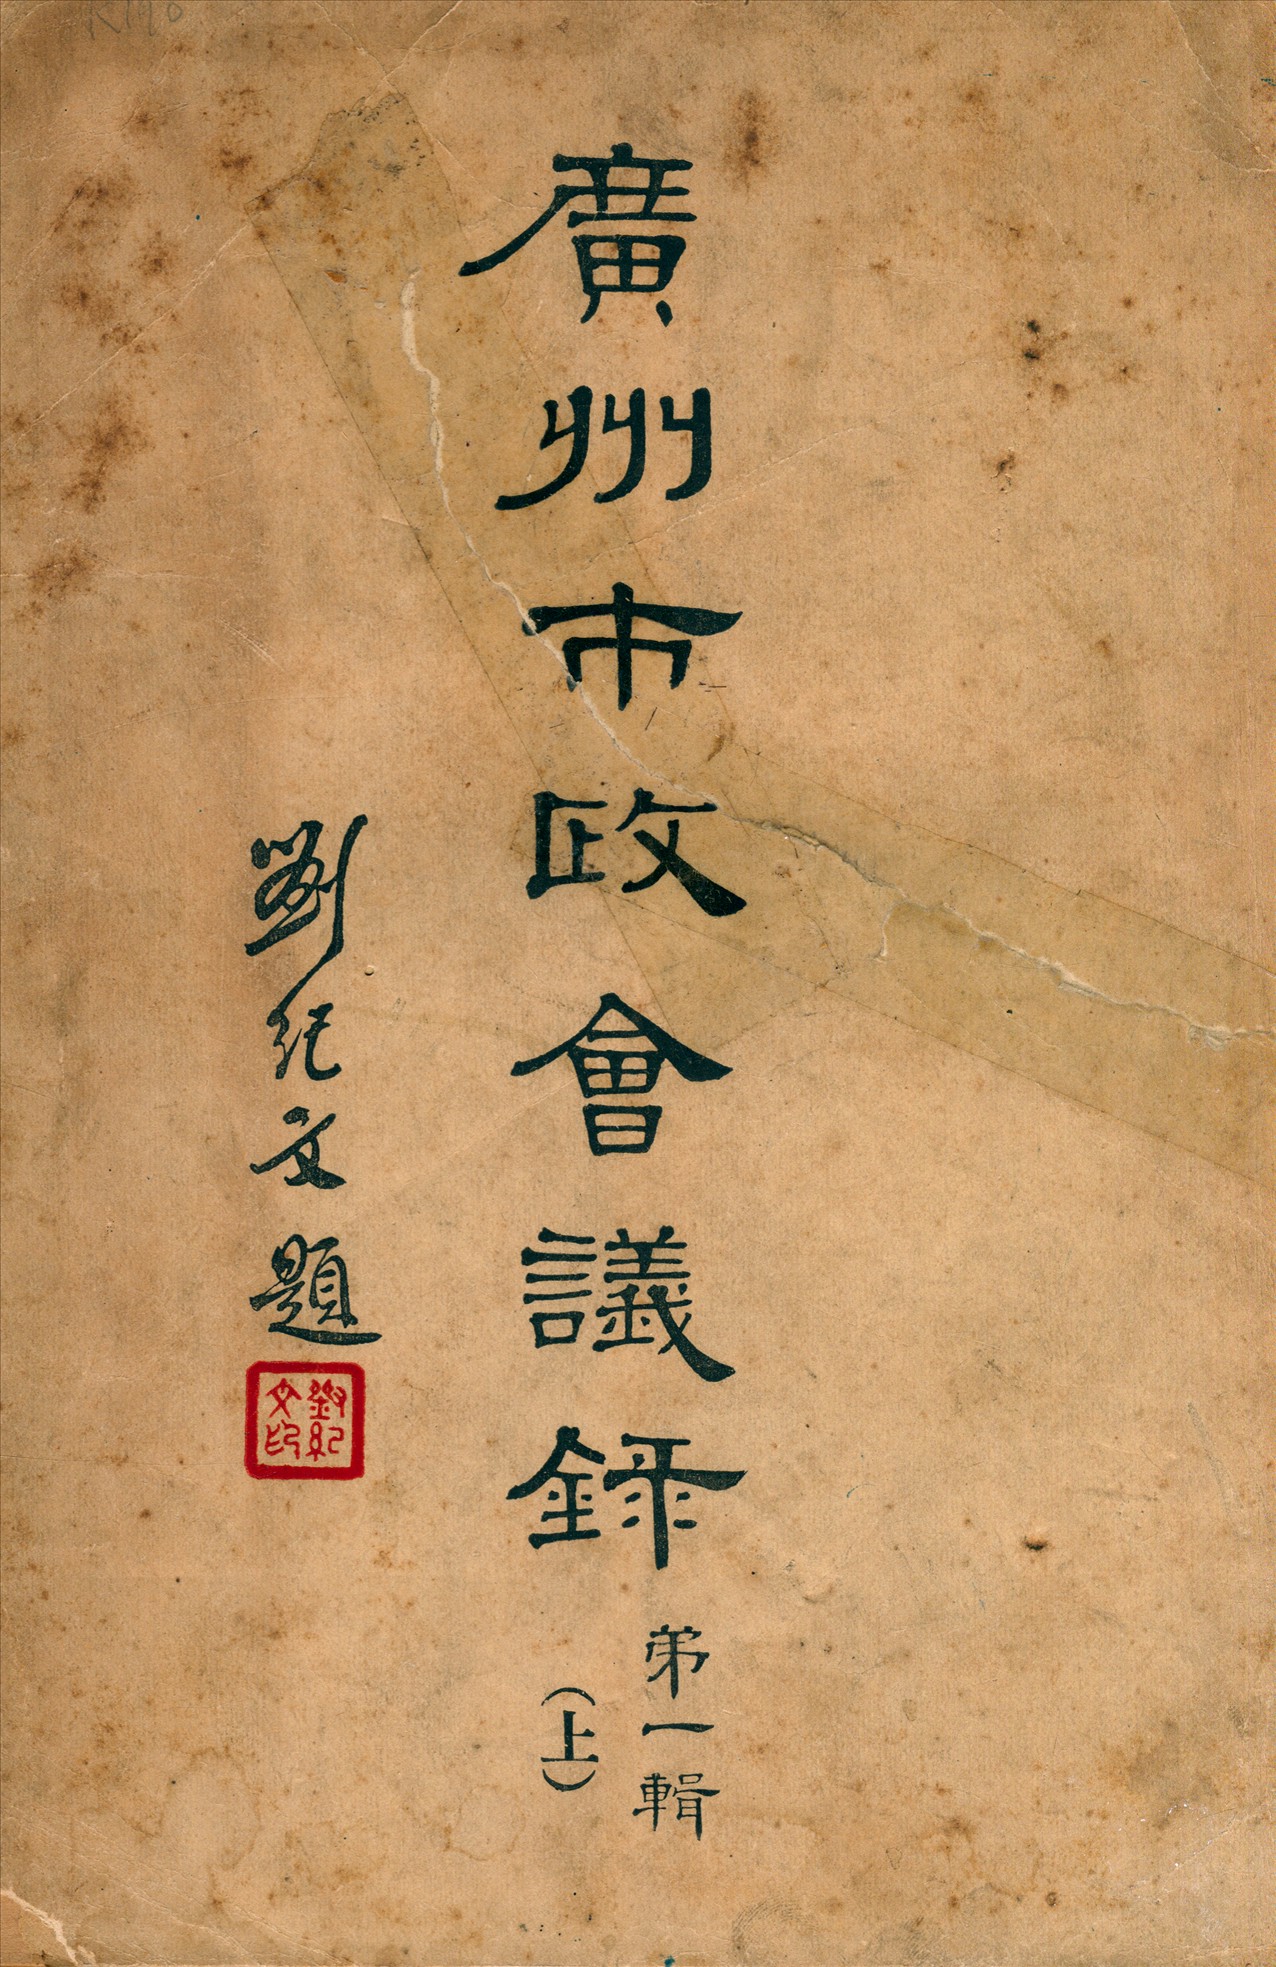 廣州市政會議録
弟一輯
(上)
劉紀文題
劉紀文印